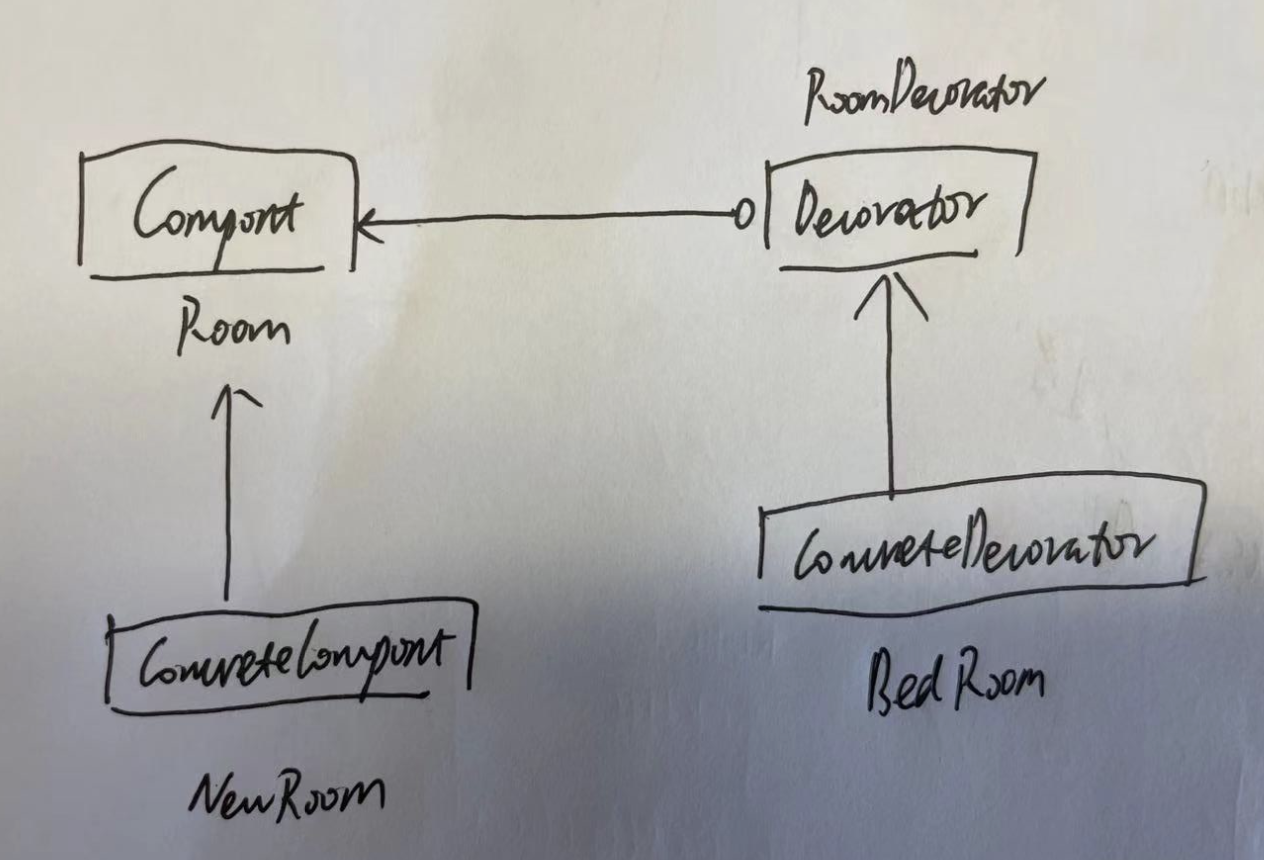 RoomDecorator
Compont
Decorator
Room
ConcreteDecorator
ConcreteCompont
BedRoom
NewRoom